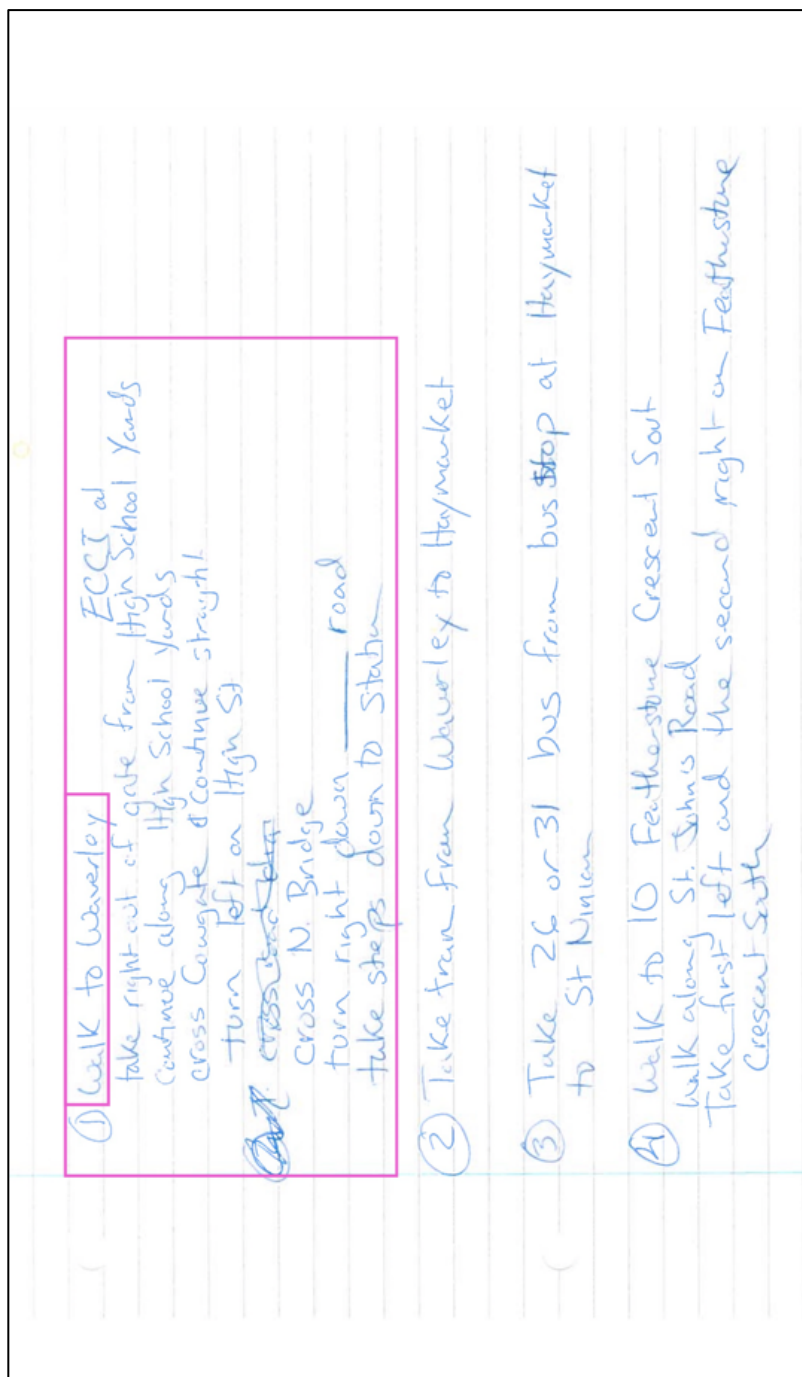 ① Walk to Waverley
ECCI at
take right out of gate from High School Yards
Continue along High School Yards
cross Cowgate & Continue straight
turn left on High St
cross road
cross N. Bridge
turn right down ____ road
take steps down to station
② Take train from Waverley to Haymarket
③ Take 26 or 31 bus from bus stop at Haymarket
to St Ninian
④ Walk to 10 Featherstone Crescent Sout
Walk along St. John's Road
Take first left and the second right on Featherstone
Crescent South